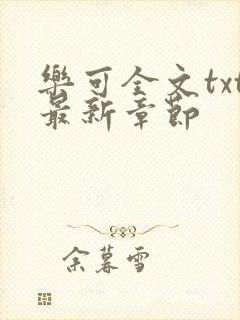 樂可全文txt
最新章節
余暮雪